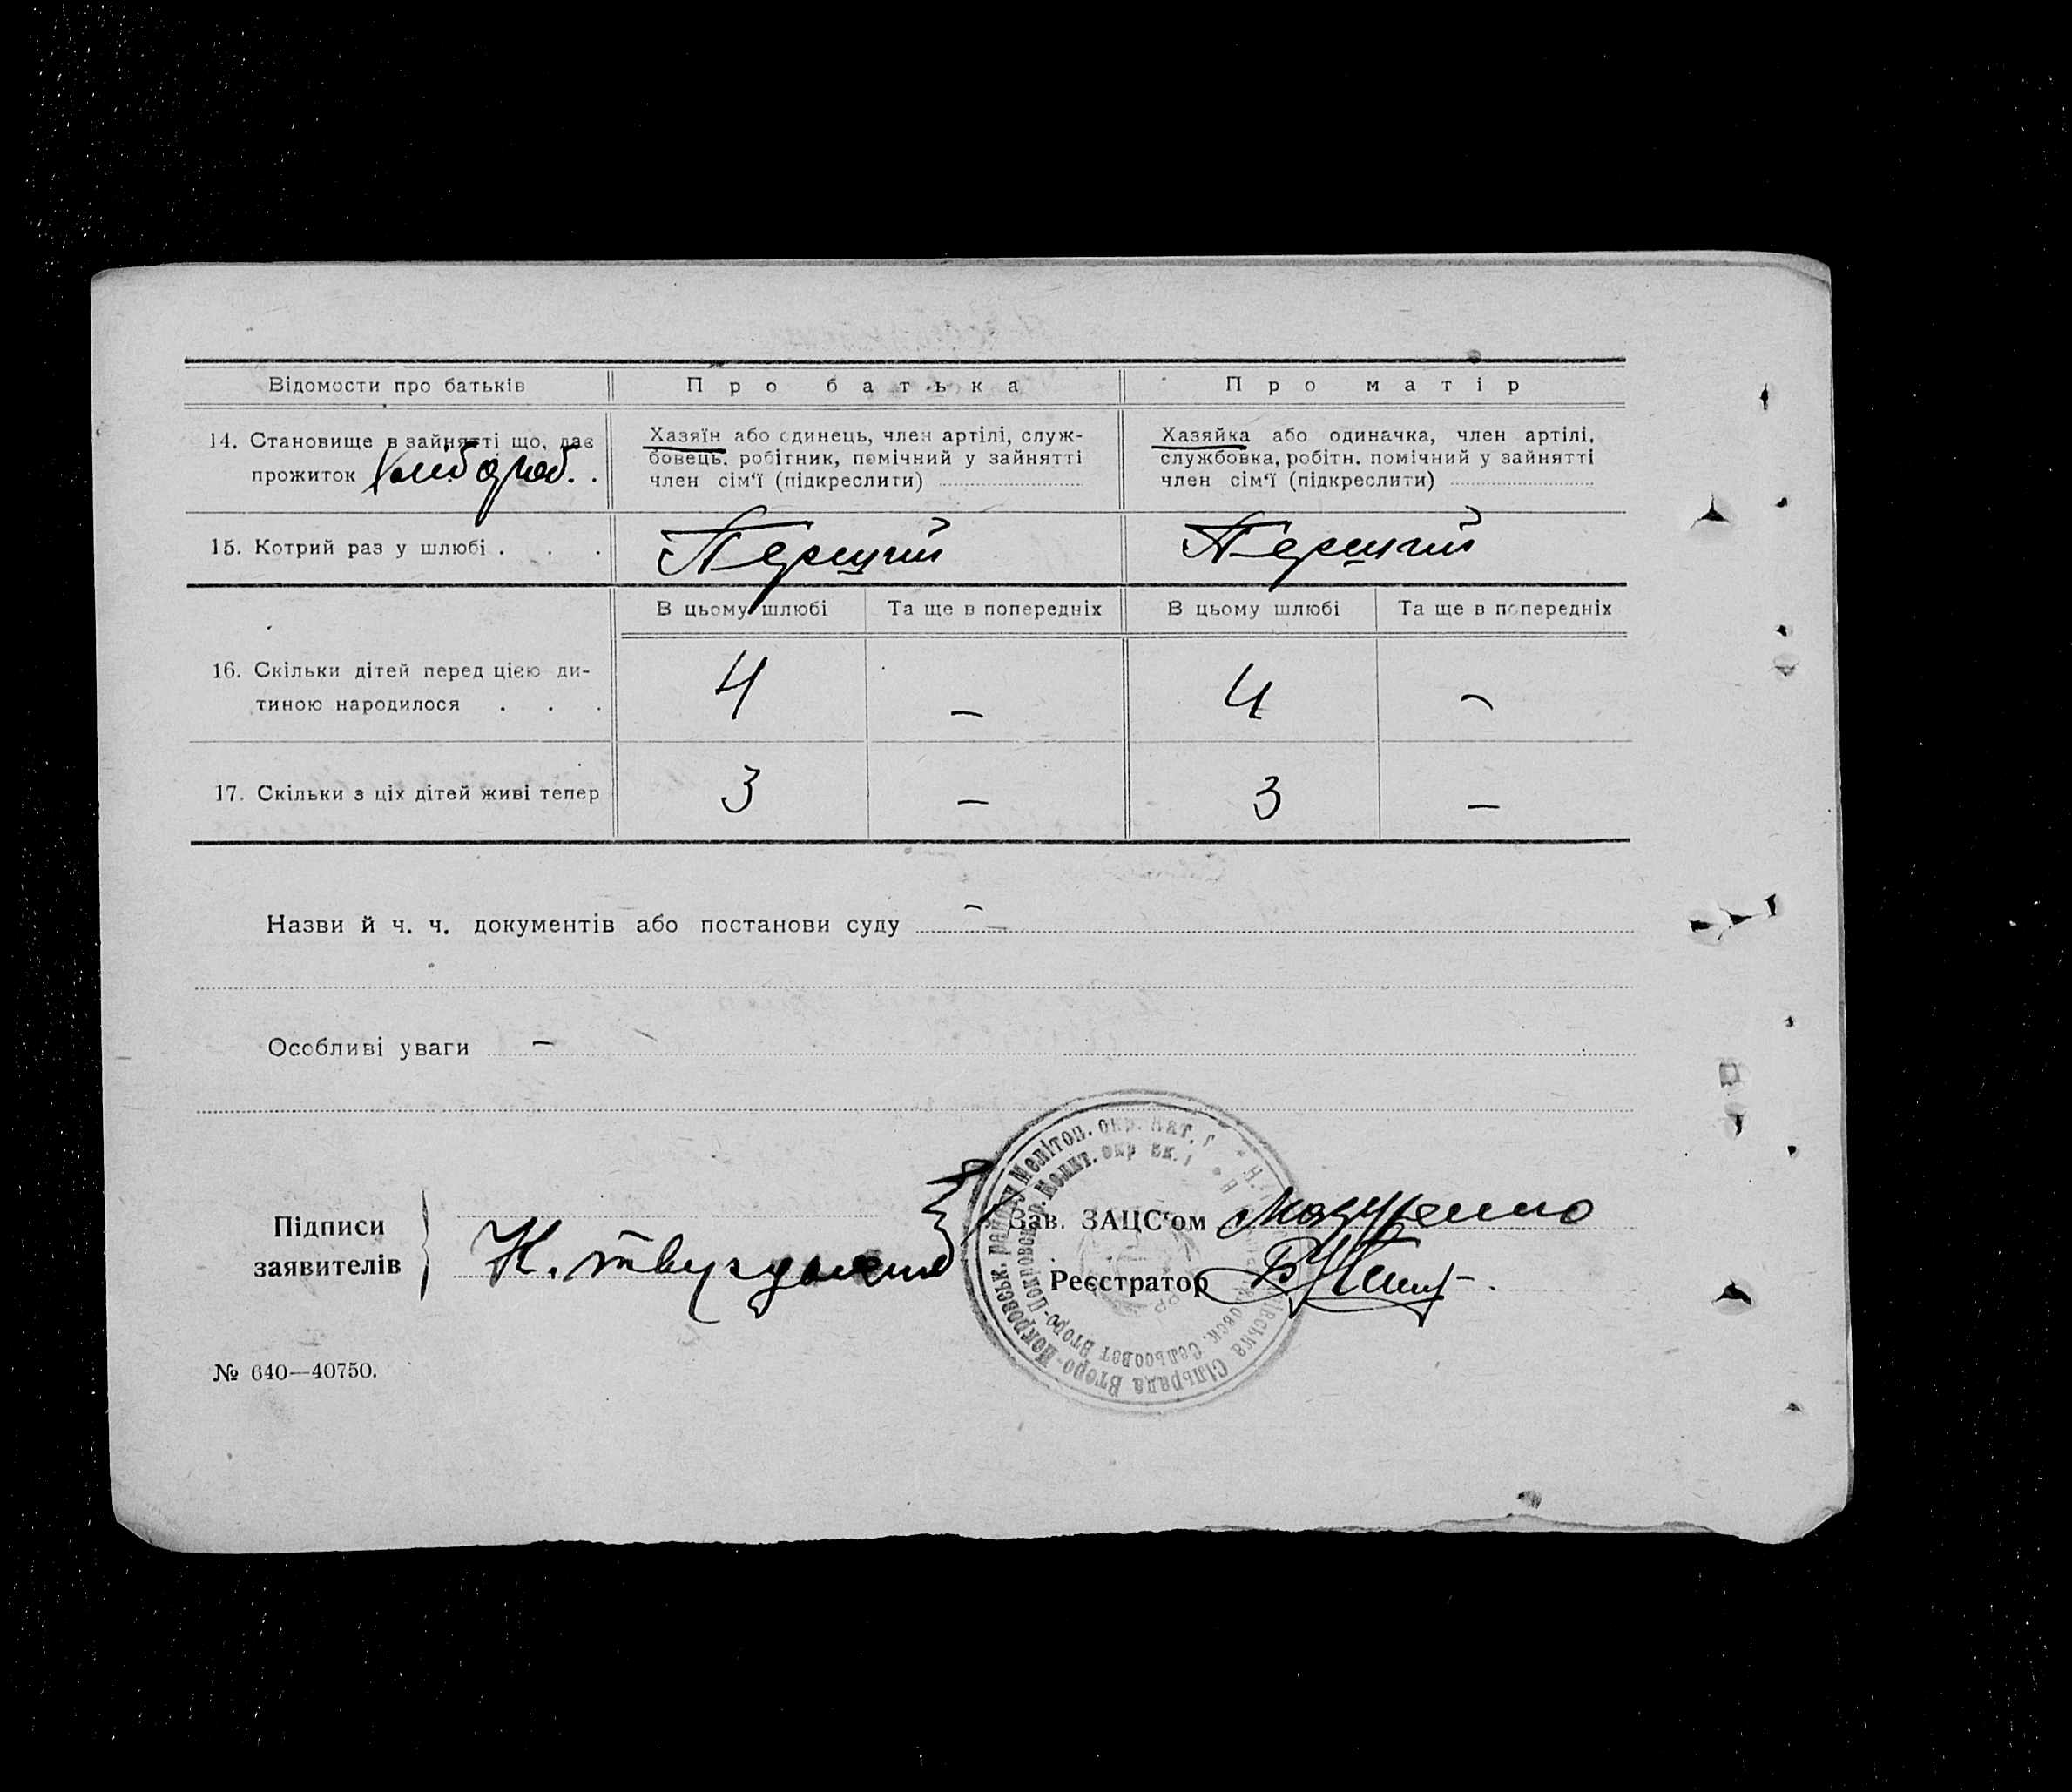 Відомости про батьків
П р о  б а т ь к а
П р о  м а т і р
14. Становище в зайнятті що, дає
прожиток хлібороб.
Хазяїн або одинець, член артілі, служ-
бовець, робітник, помічний у зайнятті
член сім'ї (підкреслити)
Хазяйка або одиначка, член артілі,
службовка, робітн. помічний у зайнятті
член сім'ї (підкреслити)
15. Котрий раз у шлюбі . . .
В цьому шлюбі
Та ще в попередніх
В цьому шлюбі
Та ще в попередніх
16. Скільки дітей перед цією ди-
тиною народилося . . .
4 – 4 –
17. Скільки з ціх дітей живі тепер
3 – 3 –
Назви й ч. ч. документів або постанови суду –
Особливі уваги –
Підписи
заявителів
Зав. ЗАЦС'ом
Реєстратор
Сільрада Второ-Покровськ. району Меліτοп. окр.
Сельсовет Второ-Покровск. р. Мелит. окр
№ 640—40750.